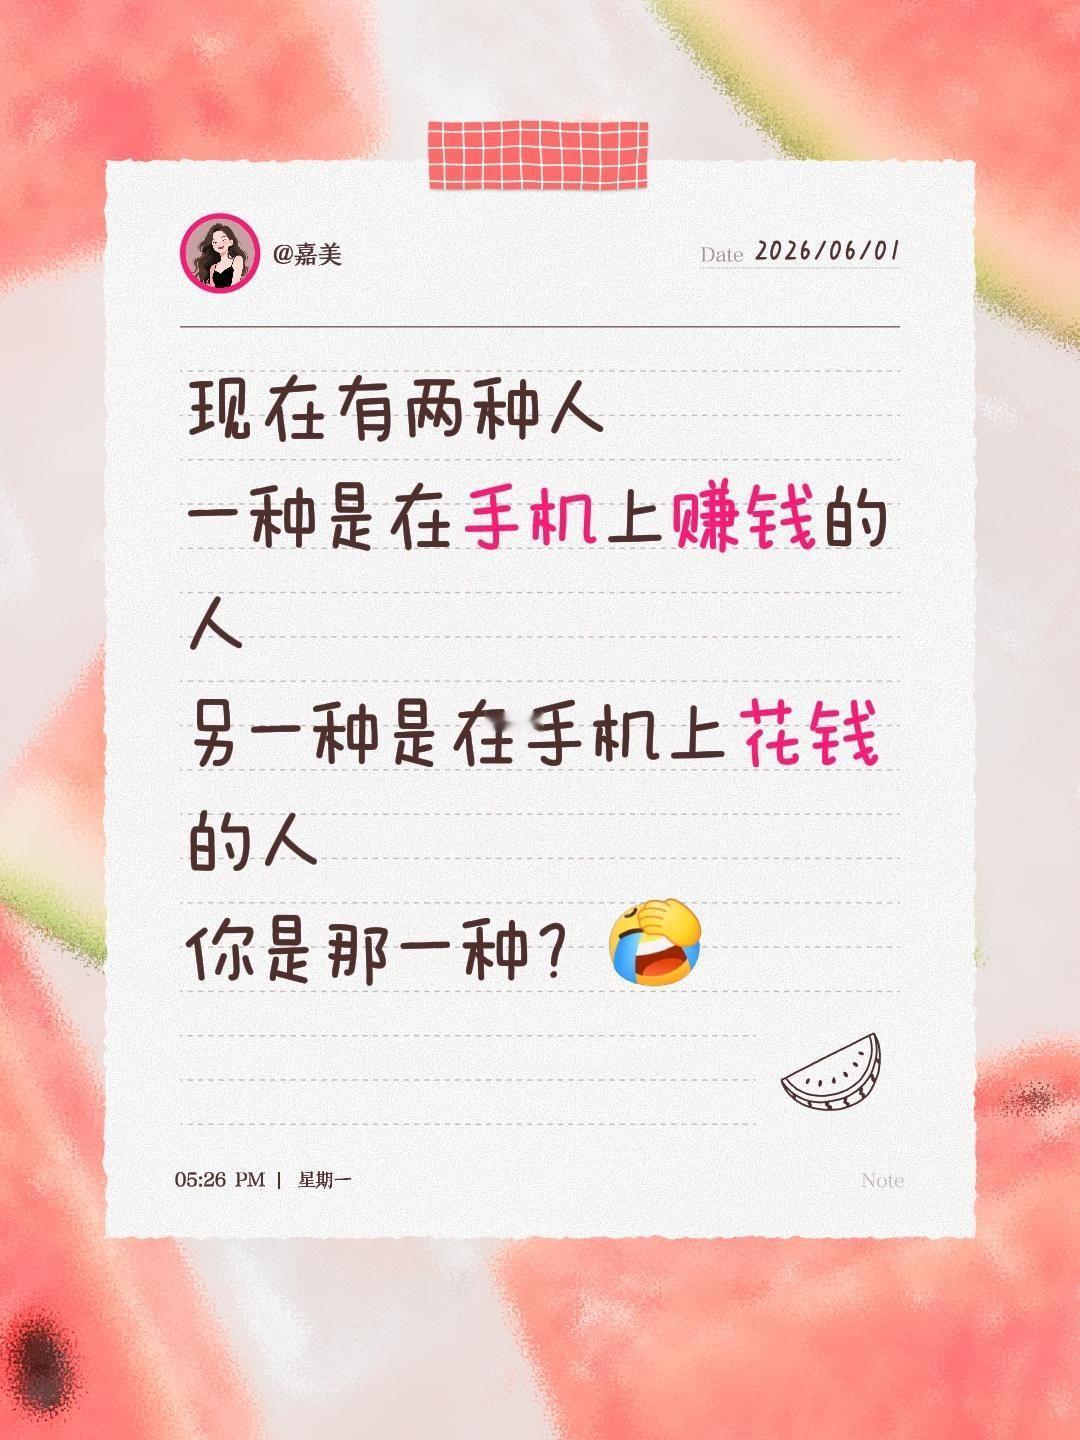 @嘉美
Date 2026/06/01
现在有两种人
一种是在手机上赚钱的
人
另一种是在手机上花钱
的人
你是那一种？🤦
05:26 PM | 星期一
Note